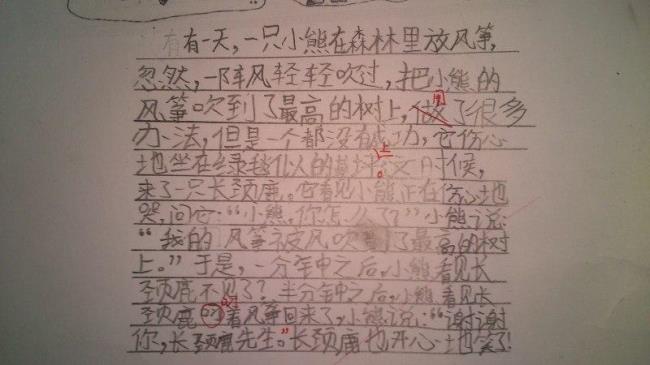 有有一天，一只小熊在森林里放风筝，
忽然，一阵风轻轻吹过，把小熊的
风筝吹到了最高的树上，做用了很多
办法，但是一个都没有成功，它伤心
地坐在绿毯似人的草坪上。这时候，
来了一只长颈鹿。它看见小熊正在伤心地
哭，问它：“小熊，你怎么了？”小熊说：
“我的风筝被风吹到了最高的树
上。”于是，一分钟之后，小熊看见长
颈鹿不见了？半分钟之后，小熊看见长
颈鹿叼着风筝回来了，小熊说：“谢谢
你，长颈鹿先生。”长颈鹿也开心地笑了！